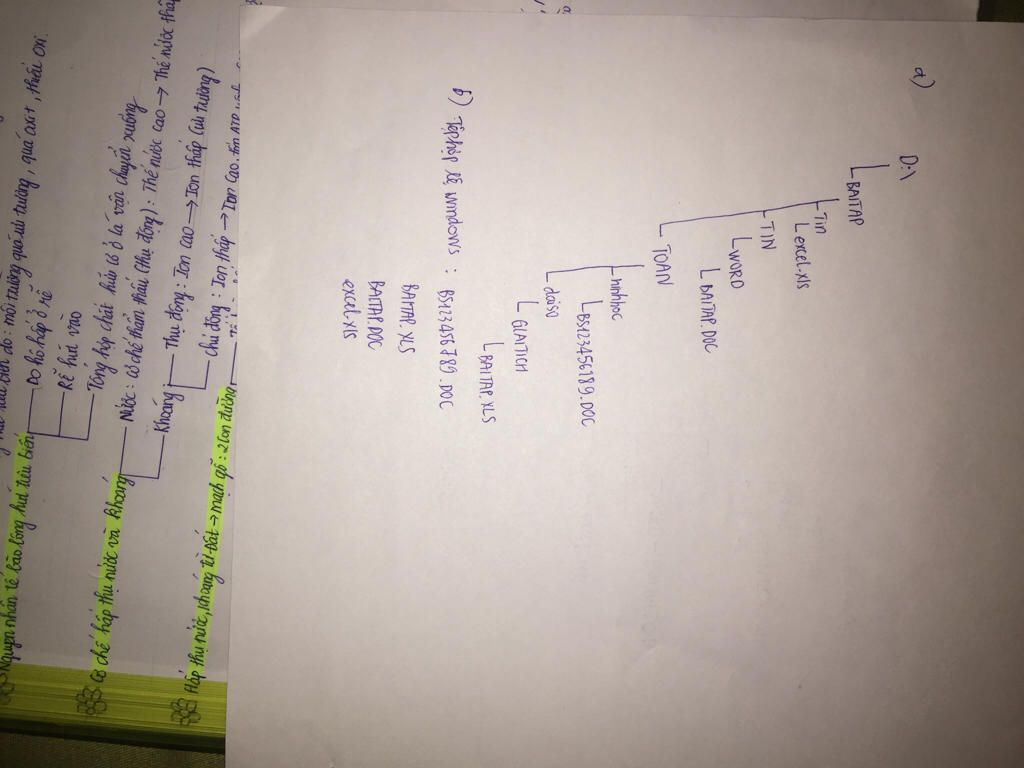 a)
D:\
BAITAP
Tin
excel.xls
TIN
WORD
BAITAP.DOC
TOAN
hinhhoc
BS123456189.DOC
daiso
GIAITICH
BAITAP.XLS
b) Tệp hợp lệ windows : BS123456789.DOC
BAITAP.XLS
BAITAP.DOC
excel.XLS
Nguyên nhân tế bào lông hút tiêu biến do : môi trường quá ưu trương, quá axit, thiếu oxi.
Do hô hấp ở rễ
Rễ hút vào
Tổng hợp chất hữu cơ ở lá vận chuyển xuống
Cơ chế hấp thụ nước và khoáng
Nước : cơ chế thẩm thấu (thụ động) : Thế nước cao → Thế nước thấp
Khoáng
Thụ động : Ion cao → Ion thấp (ưu trương)
Chủ động : Ion thấp → Ion cao, tốn ATP
Hấp thụ nước, khoáng từ đất → mạch gỗ : 2 con đường